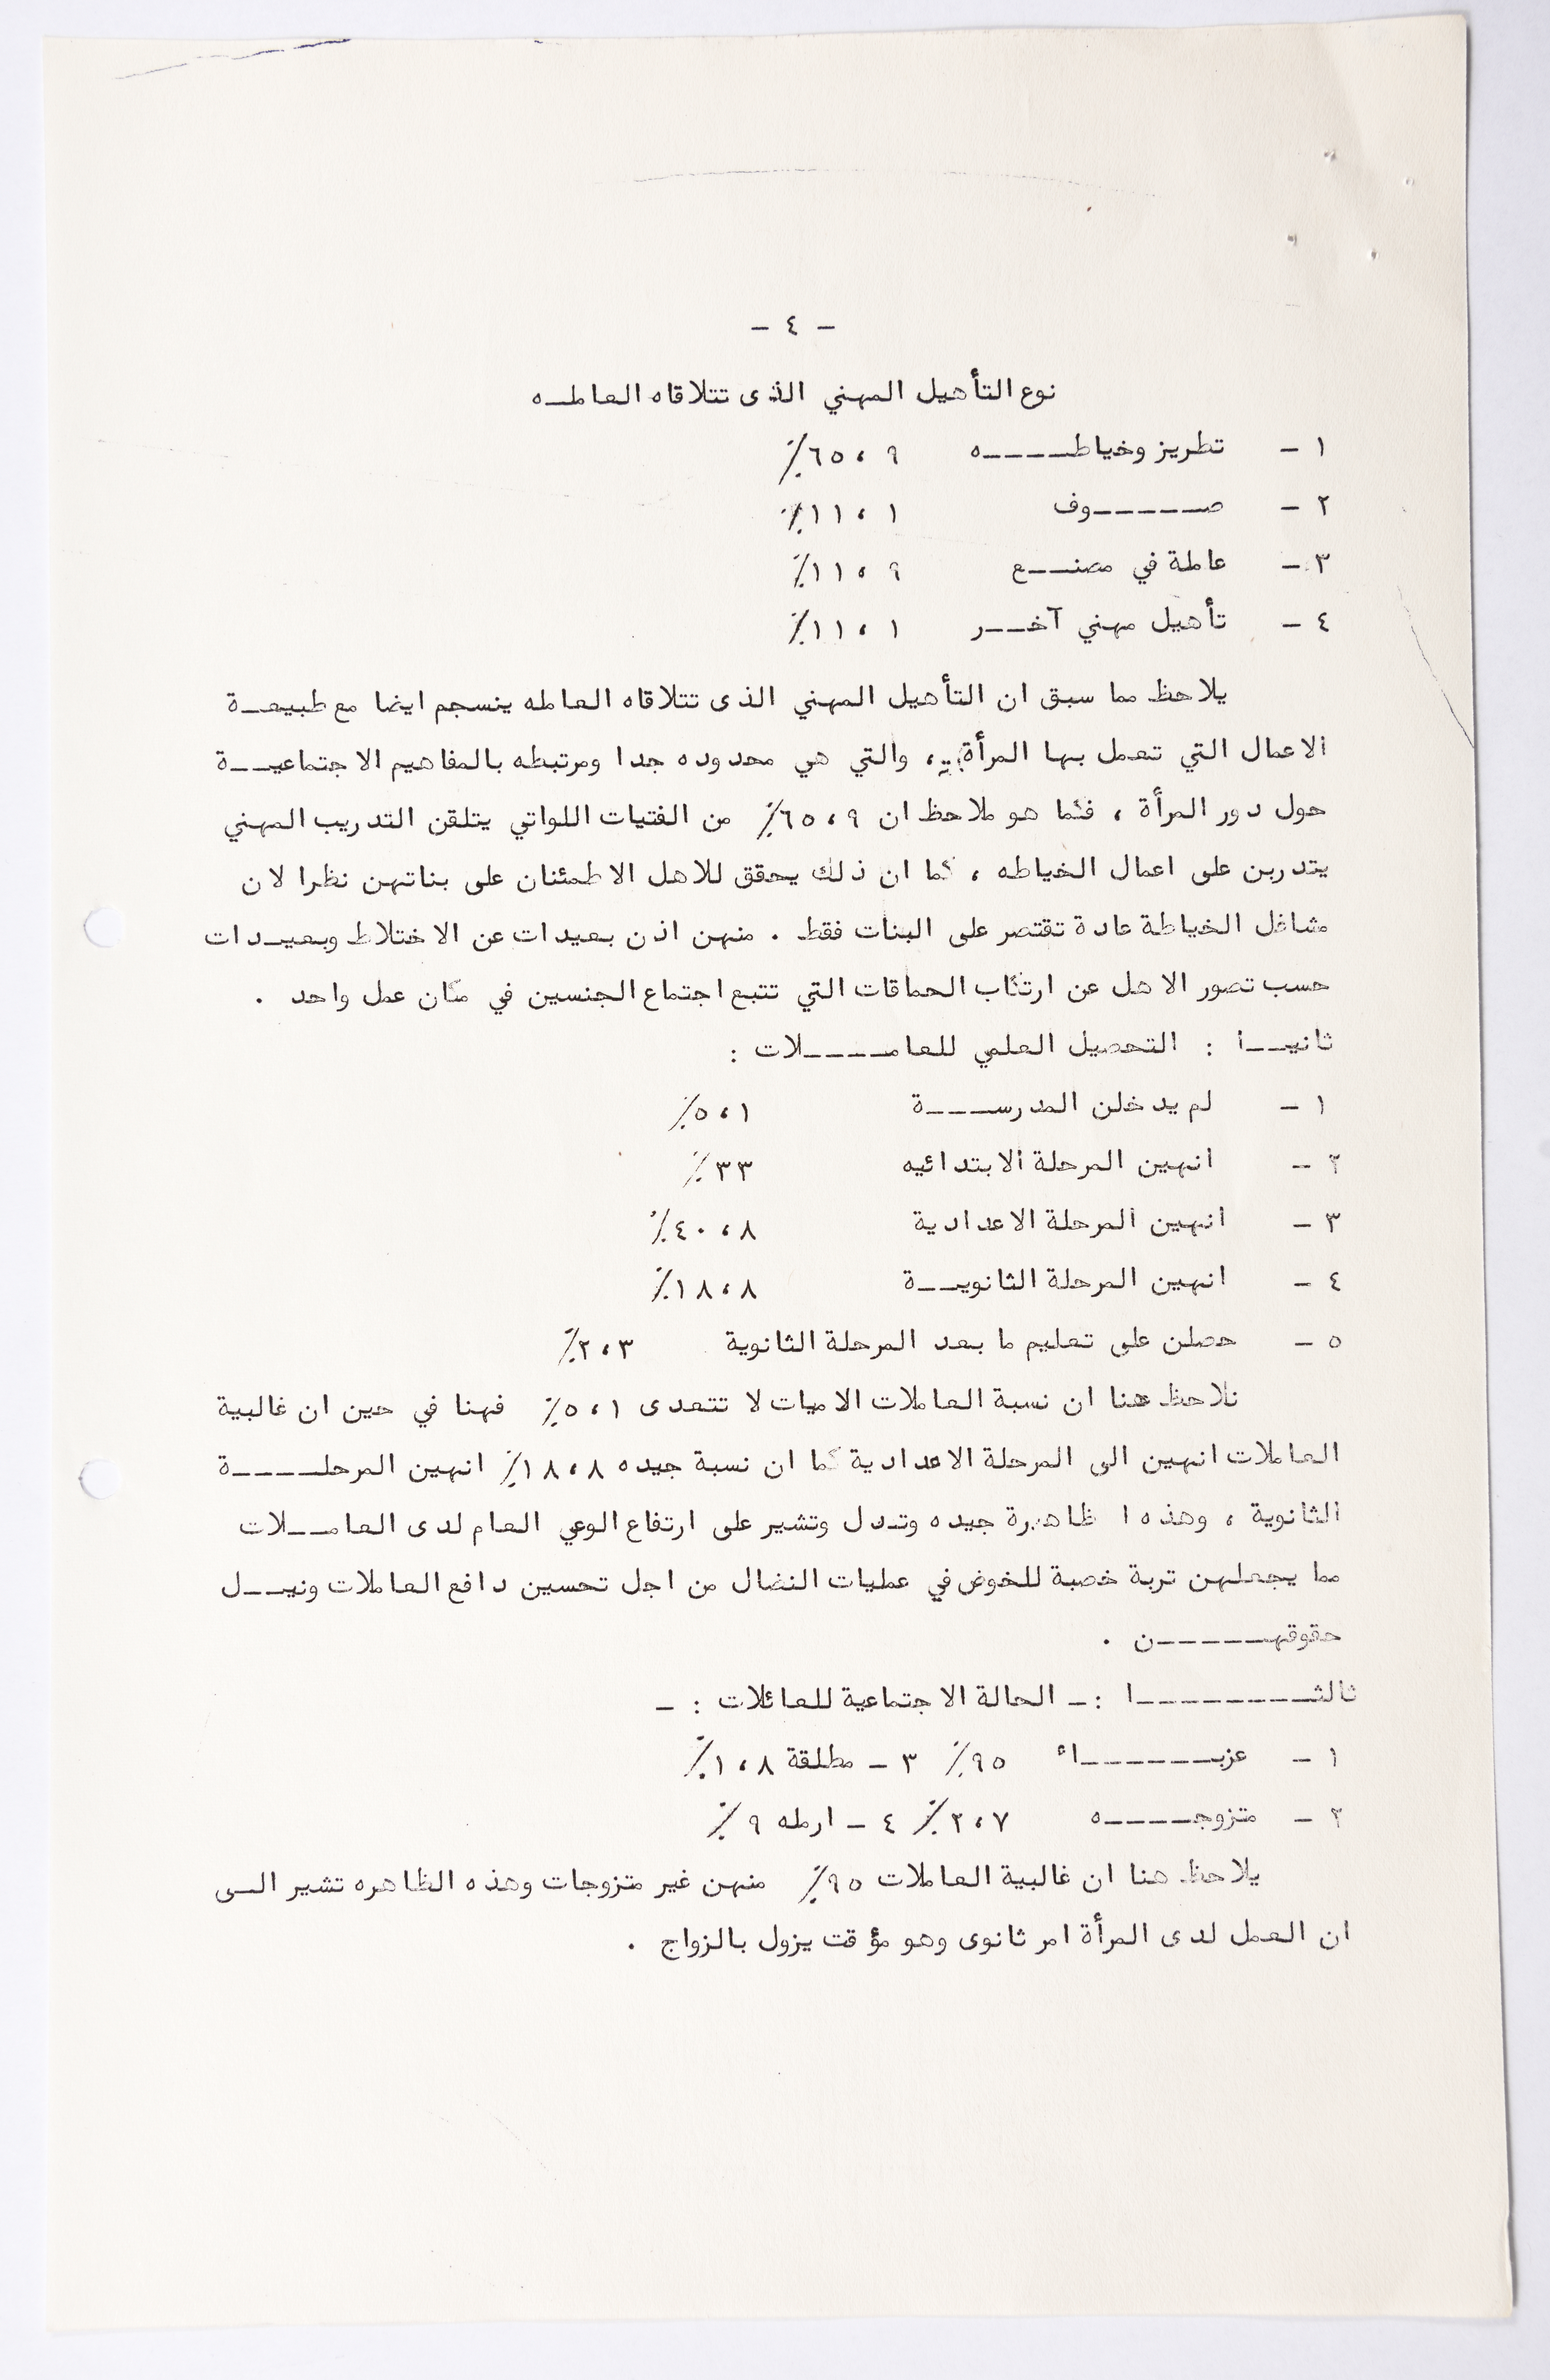 - ٤ -
نوع التأهيل المهني الذى تتلاقاه العاملـه
١ - تطريز وخياطـــــه ٦٥،٩٪
٢ - صــــــوف ١١،١٪
٣ - عاملة في مصنـــع ١١،٩٪
٤ - تأهيل مهني آخـــر ١١،١٪
يلاحظ مما سبق ان التأهيل المهني الذى تتلاقاه العامله ينسجم ايضا مع طبيعــة
الاعمال التي تعمل بها المرأة ، والتي هي محدوده جدا ومرتبطه بالمفاهيم الاجتماعيــة
حول دور المرأة ، فكما هو ملاحظ ان ٦٥،٩٪ من الفتيات اللواتي يتلقن التدريب المهني
يتدربن على اعمال الخياطه ، كما ان ذلك يحقق للاهل الاطمئنان على بناتهن نظرا لان
مشاغل الخياطة عادة تقتصر على البنات فقط . منهن اذن بعيدات عن الاختلاط وبعيـدات
حسب تصور الاهل عن ارتكاب الحماقات التي تتبع اجتماع الجنسين في مكان عمل واحد .
ثانيــا : التحصيل العلمي للعامـــــلات :
١ - لم يدخلن المدرســـــة ٥،١٪
٢ - انهين المرحلة الابتدائيه ٣٣٪
٣ - انهين المرحلة الاعدادية ٤٠،٨٪
٤ - انهين المرحلة الثانويـــة ١٨،٨٪
٥ - حصلن على تعليم ما بعد المرحلة الثانوية ٢،٣٪
نلاحظ هنا ان نسبة العاملات الاميات لا تتعدى ٥،١٪ فهنا في حين ان غالبية
العاملات انهين الى المرحلة الاعدادية كما ان نسبة جيده ١٨،٨٪ انهين المرحلـــــة
الثانوية ، وهذه ا ظاهرة جيده وتدل وتشير على ارتفاع الوعي العام لدى العامــلات
مما يجعلهن تربة خصبة للخوض في عمليات النضال من اجل تحسين دافع العاملات ونيــل
حقوقهــــــن .
ثالثــــــــــا :- الحالة الاجتماعية للعائلات : -
١ - عزبـــــــاء ٩٥٪ ٣ - مطلقة ١،٨٪
٢ - متزوجـــــه ٢،٧٪ ٤ - ارمله ٩٪
يلاحظ هنا ان غالبية العاملات ٩٥٪ منهن غير متزوجات وهذه الظاهره تشير الـى
ان العمل لدى المرأة امر ثانوى وهو مؤقت يزول بالزواج .